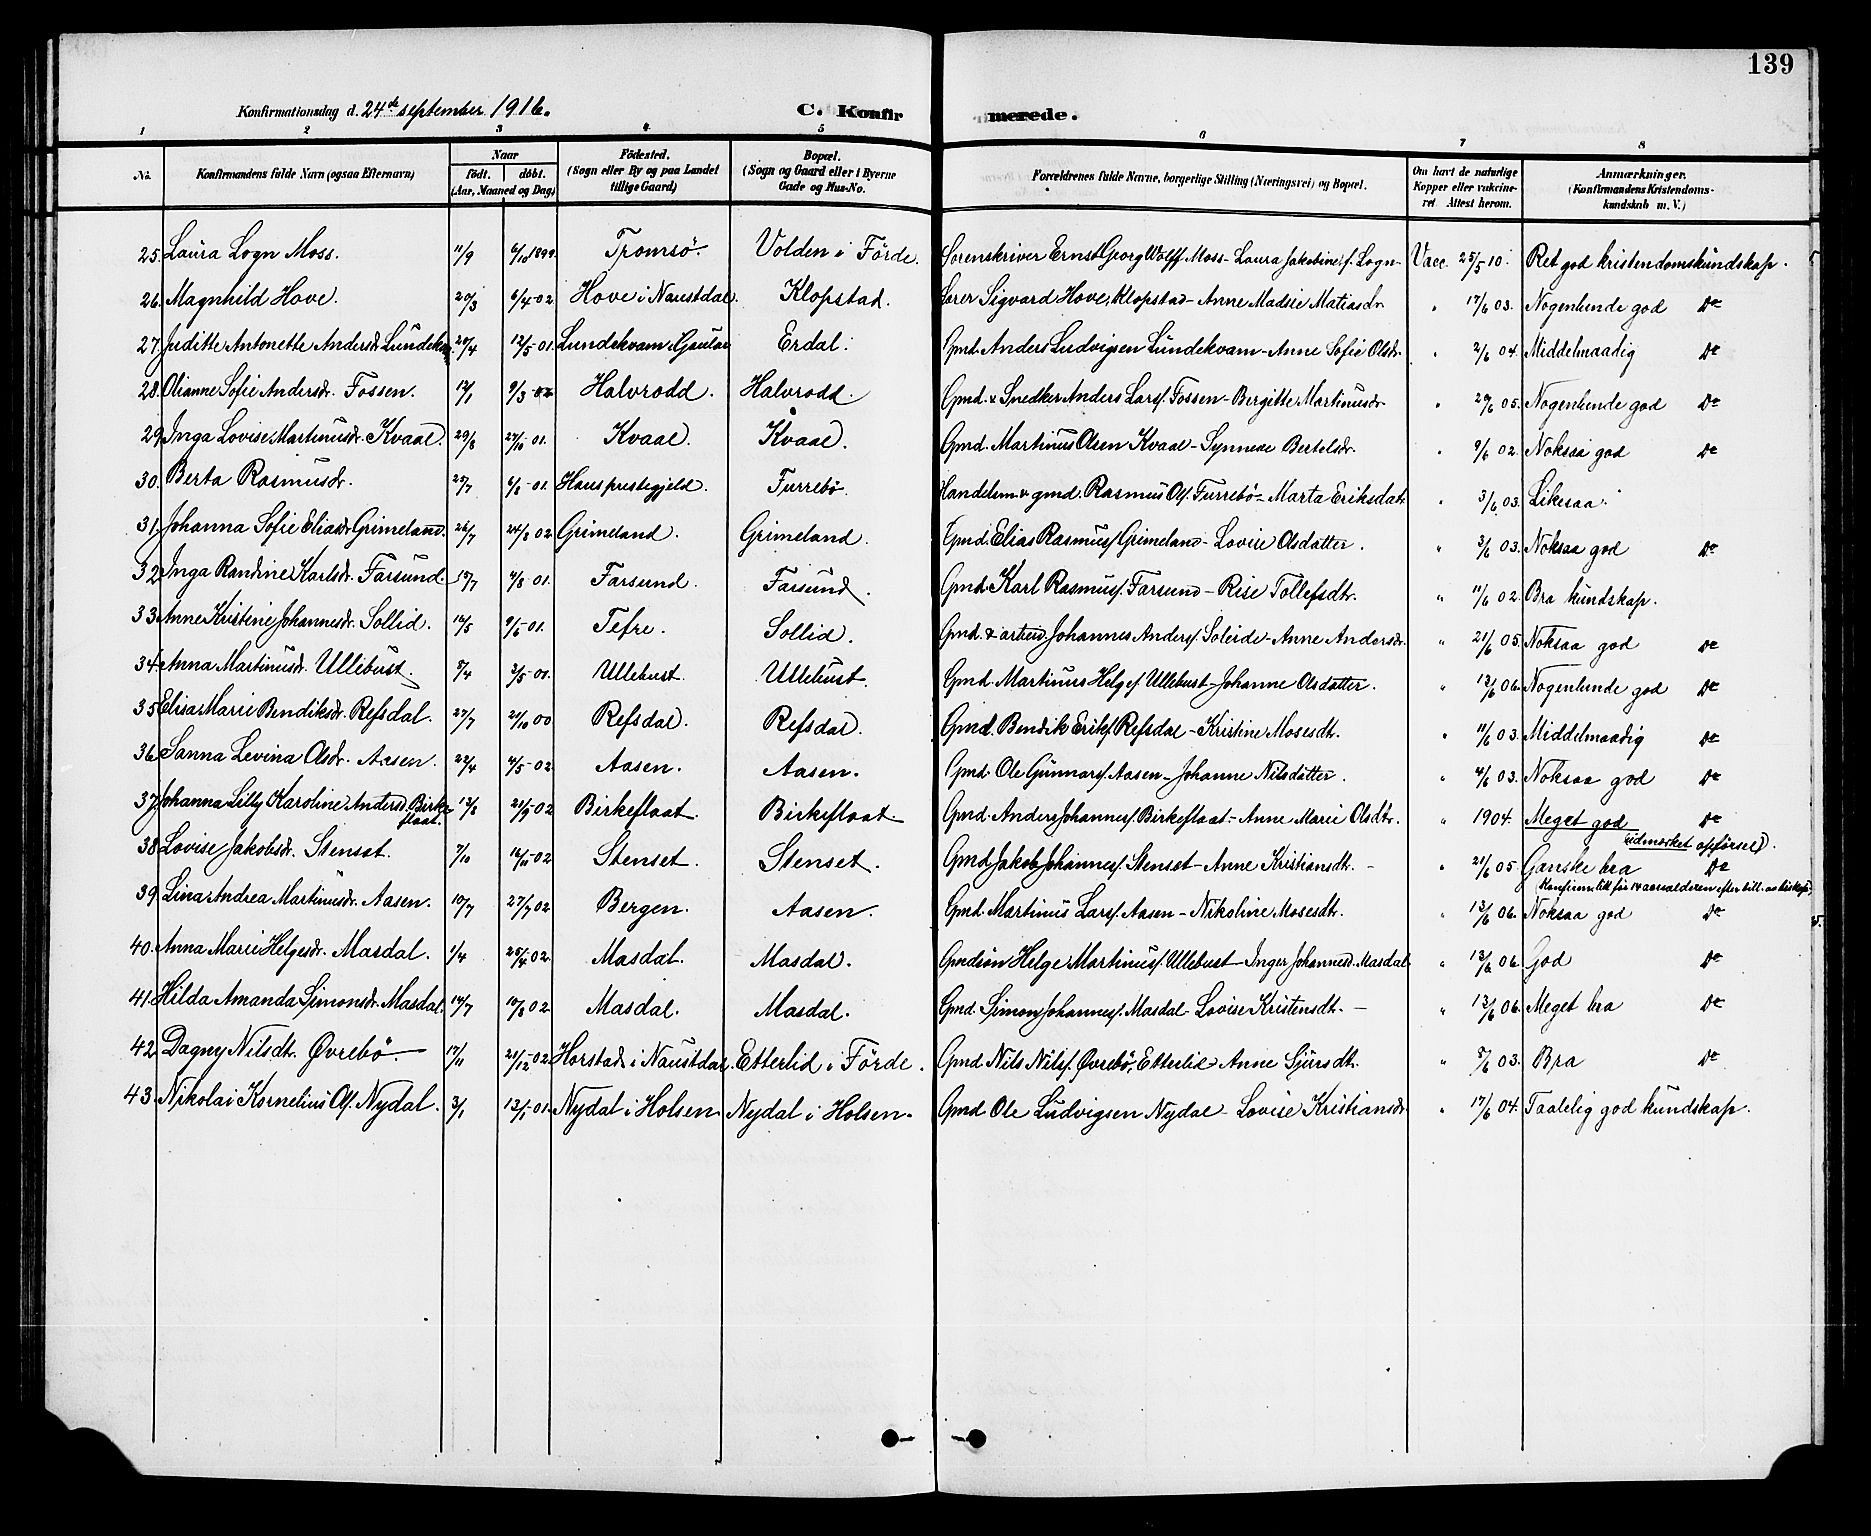 139
Konfirmationsdag d. 24de september 1916.
C. Konfirmerede.
1 2 3 4 5 6 7 8
No.
Konfirmandens fulde Navn (ogsaa Efternavn)
Naar
födt. döbt.
(Aar, Maaned og Dag)
Födested.
(Sogn eller By og paa Landet
tillige Gaard)
Bopæl.
(Sogn og Gaard eller i Byerne
Gade og Hus-No.
Forældrenes fulde Navne, borgerlige Stilling (Næringsvei) og Bopæl.
Om havt de naturlige
Kopper eller vakcine-
ret. Attest herom.
Anmærkninger.
(Konfirmandens Kristendoms-
kundskab m. V.)
25. Laura Logn Moss. 11/9 6/10 1899. Tromsö. Volden i Förde. Sorenskriver Ernst Georg Wolff Moss - Laura Jakobine f. Logn - Vacc. 25/5 10. Ret god kristendomskundskap.
26. Magnhild Hove. 20/3 6/4-02 Hove i Naustdal. Klopstad. Lærer Sigvard Hove, Klopstad - Anne Madsie Matiasdr. " 17/6 03. Nogenlunde god Do
27. Juditte Antonette Andersdr. Lundekvam 20/4 12/5-01. Lundekvam i Gaular Erdal. Gmd. Anders Ludvigsen Lundekvam - Anne Sofie Olsdr. " 2/6 04. Middelmaadig Do
28. Olianne Sofie Andersdr. Fossen. 12/1 9/3-02 Halvrodd. Halvrodd. Gmd. & Snedker Anders Larsf. Fossen - Bergitte Martinusdr " 29/6 05. Nogenlunde god Do
29. Inga Lovise Martinusdr. Kvaal. 29/8 27/10-01. Kvaal. Kvaal. Gmd. Martinus Olsen Kvaal - Synneve Bertelsdr. " 9/6 02. Noksaa god Do
30. Berta Rasmusdr. 22/7 6/8-01. Haus prestegjeld. Furrebö. Handelsm. & gmd. Rasmus Ols. Furrebö - Marta Eriksdat. " 3/6 03. Likesaa.
31. Johanna Sofie Eliasdr. Grimeland. 26/7 24/8 02. Grimeland. Grimeland. Gmd. Elias Rasmusf. Grimeland - Lovise Olsdatter. " 3/6 03. Noksaa god Do
32. Inga Randine Karlsdr. Farsund. 12/7 4/8 01. Farsund. Farsund. Gmd. Karl Rasmusf. Farsund - Rise Tollefsdtr. " 11/6 02. Bra kundskap.
33. Anne Kristine Johannesdr. Sollid. 12/5 9/6-01. Tefre. Sollid. Gmd. & arbeid. Johannes Andersf. Soleide - Anne Andersdr. " 21/6 05. Noksaa god Do
34. Anna Martinusdr. Ullebust. 8/4 3/5-01. Ullebust. Ullebust. Gmd. Martinus Helgef. Ullebust - Johanne Olsdatter. " 13/6 06. Nogenlunde god Do
35. Elisa Marie Bendiksdr. Refsdal. 27/7 21/10 00 Refsdal. Refsdal. Gmd. Bendik Erikf. Refsdal - Kristine Mosesdt. " 11/6 03. Middelmaadig Do
36. Sanna Levina Olsdr. Aasen. 22/4 4/5-02. Aasen. Aasen. Gmd. Ole Gunnarsf. Aasen - Johanne Nilsdatter. " 4/6 03. Noksaa god Do
37. Johanna Lilly Karoline Andersd. Birke-
flaat. 13/8 21/9-02 Birkeflaat. Birkeflaat. Gmd. Anders Johannesf. Birkeflaat - Anne Marie Olsdtr. " 1904. Meget god Do
udmerket opförsel.
38. Lovise Jakobsdr. Stenset. 7/10 16/11-02 Stenset. Stenset. Gmd. Jakob Johannesf. Stenset - Anne Kristiansdt. - " 21/6 05. Ganske bra Do
39. Lina Andrea Martinusdr. Aasen. 10/7 27/7 02 Bergen. Aasen. Gmd. Martinus Larsf. Aasen - Nikoline Mosesdt. " 13/6 06. Noksaa god Do
40. Anna Marie Helgesdr. Masdal. 1/4 20/4 02. Masdal. Masdal. Gmdsön Helge Martinusf. Ullebust - Inger Johannesd. Masdal " 13/6 06. God Do
41. Hilda Amanda Simonsdr. Masdal. 14/7 10/8 02. Masdal. Masdal. Gmd. Simon Johannesf. Masdal - Lovise Kristensdt. - " 13/6 06. Meget bra Do
42. Dagny Nilsdt. Øvrebö. 17/11 21/12-02. Horstad i Naustdal. Etterlid i Förde. Gmd. Nils Nilsf. Øvrebö, Etterlid - Anne Sjursdt. " 8/6 03. Bra Do
43. Nikolai Kornelius Ols. Nydal. 3/1 13/1-01. Nydal i Holsen. Nydal i Holsen. Gmd. Ole Ludvigsen Nydal - Lovise Kristiansdr " 17/6 04. Taalelig god kundskap.